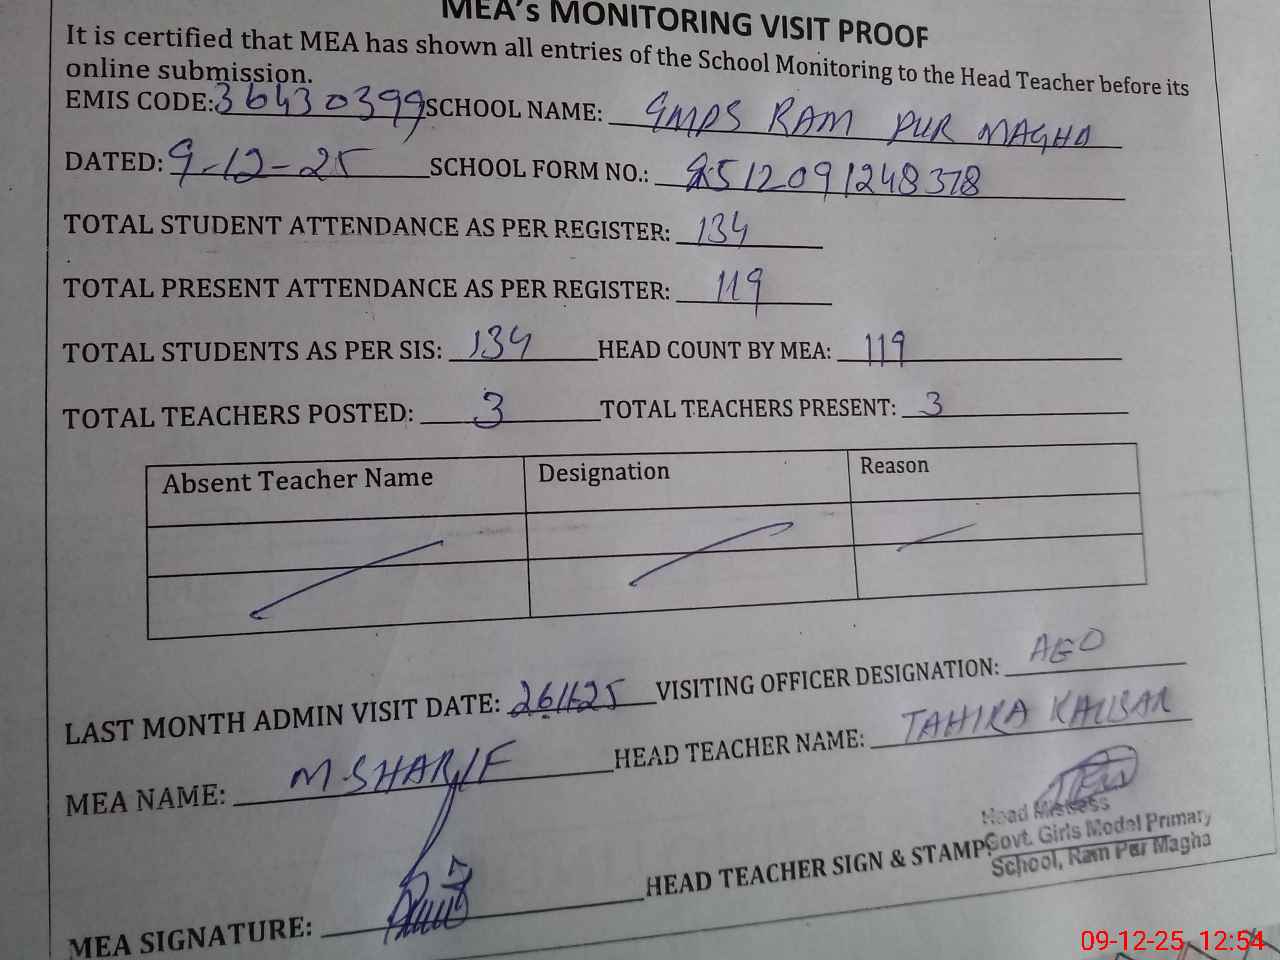 MEA's MONITORING VISIT PROOF
It is certified that MEA has shown all entries of the School Monitoring to the Head Teacher before its
online submission.
EMIS CODE: 36430399 SCHOOL NAME: GMPS RAM PUR MAGHA
DATED: 9-12-25 SCHOOL FORM NO.: 2512091248378
TOTAL STUDENT ATTENDANCE AS PER REGISTER: 134
TOTAL PRESENT ATTENDANCE AS PER REGISTER: 119
TOTAL STUDENTS AS PER SIS: 134 HEAD COUNT BY MEA: 119
TOTAL TEACHERS POSTED: 3 TOTAL TEACHERS PRESENT: 3
Absent Teacher Name Designation Reason
LAST MONTH ADMIN VISIT DATE: VISITING OFFICER DESIGNATION: AEO
MEA NAME: M.SHARIF HEAD TEACHER NAME: TAHIRA
MEA SIGNATURE: HEAD TEACHER SIGN & STAMP:
Head Mistress
Govt. Girls Model Primary
School, Ram Pur Magha
09-12-25 12:54